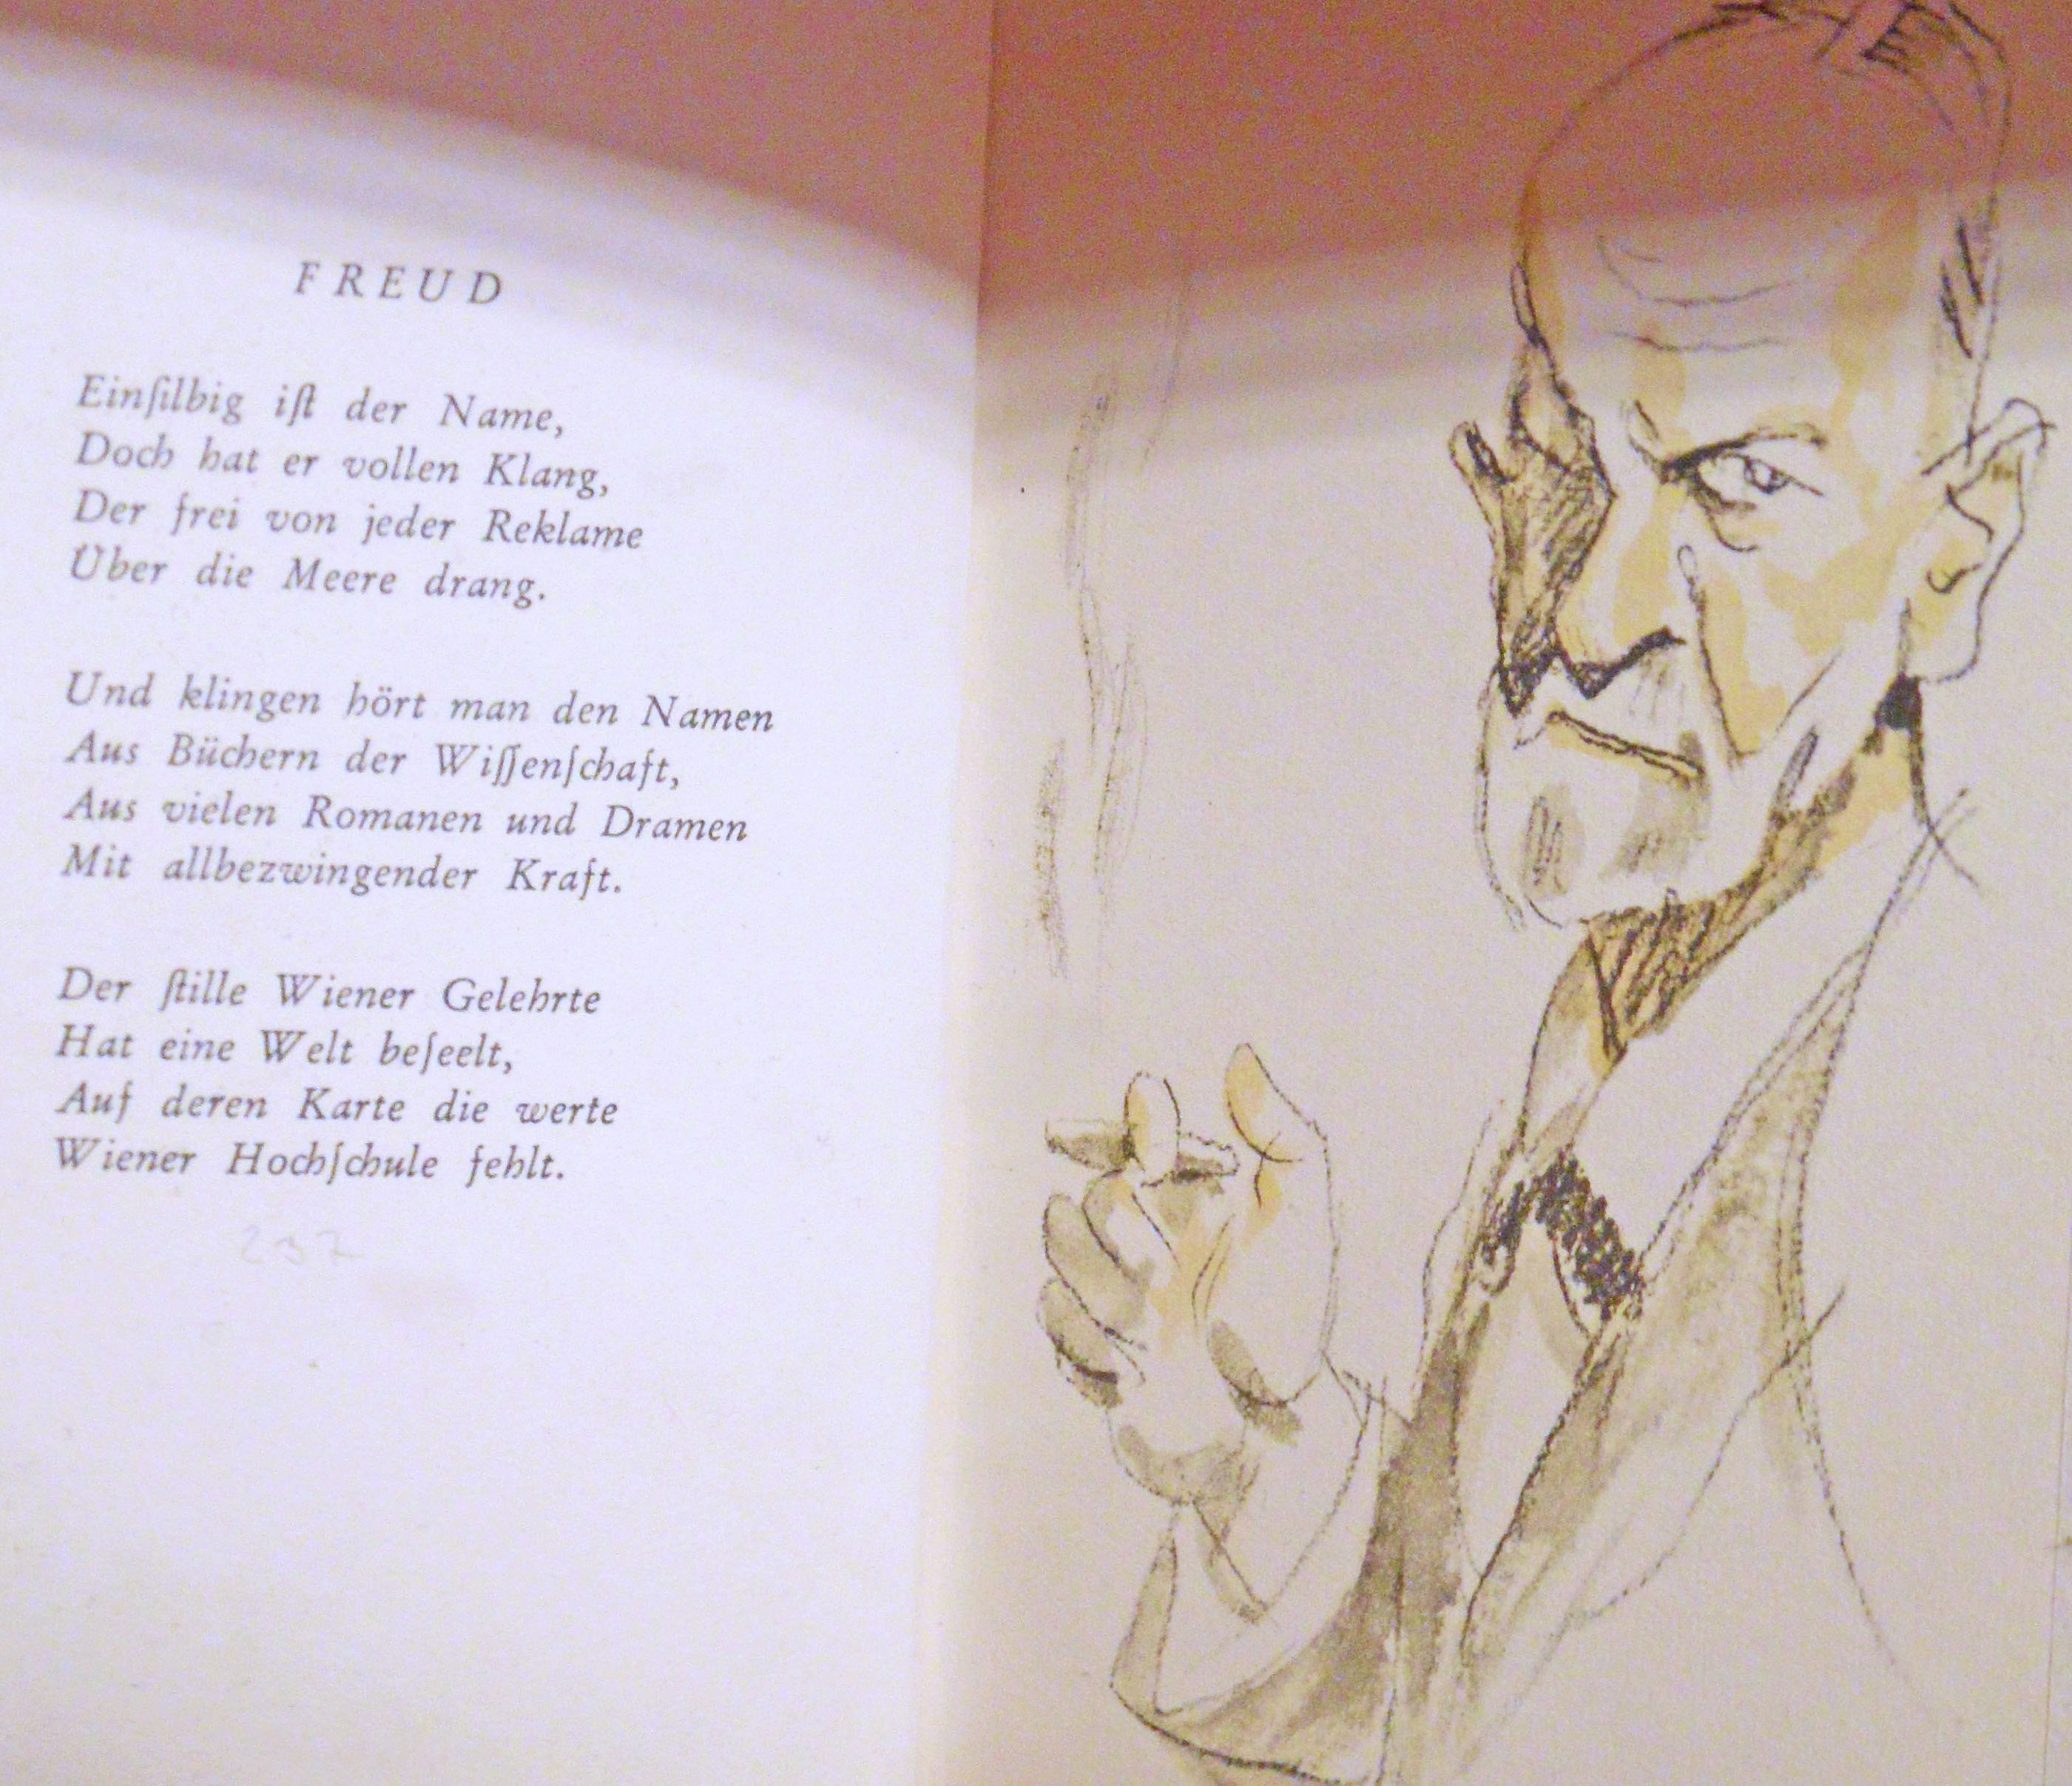 FREUD
Einſilbig iſt der Name,
Doch hat er vollen Klang,
Der frei von jeder Reklame
Über die Meere drang.
Und klingen hört man den Namen
Aus Büchern der Wiſſenſchaft,
Aus vielen Romanen und Dramen
Mit allbezwingender Kraft.
Der ſtille Wiener Gelehrte
Hat eine Welt beſeelt,
Auf deren Karte die werte
Wiener Hochſchule fehlt.
237